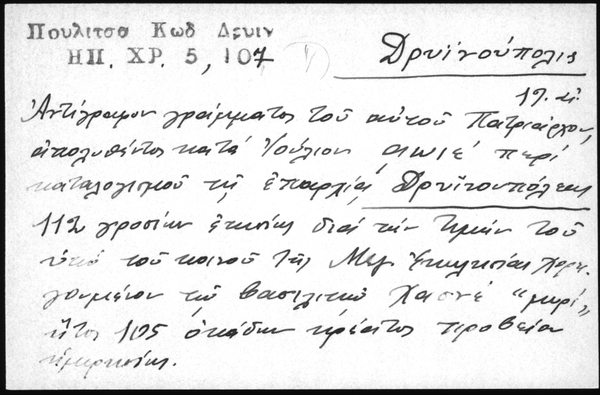 Πουλιτσα Κωδ Δρυιν
ΗΠ. ΧΡ. 5, 107
Δρυϊνούπολις
Ἀντίγραφον γράμματος τοῦ αὐτοῦ Πατριάρχου,
ἀπολυθέντος κατά Ἰούλιον αωιέ περί
καταλογισμοῦ τῇ ἐπαρχίᾳ Δρυϊνουπόλεως
112 γροσίων ἐτησίως διά τήν τιμήν τοῦ
ὑπό τοῦ κοινοῦ τῆς Μεγ. Ἐκκλησίας χορη-
γουμένου τῷ βασιλικῷ Χασνέ "μιρί"
ἤτοι 105 ὀκάδων κρέατος προβείου
ἡμερησίως.